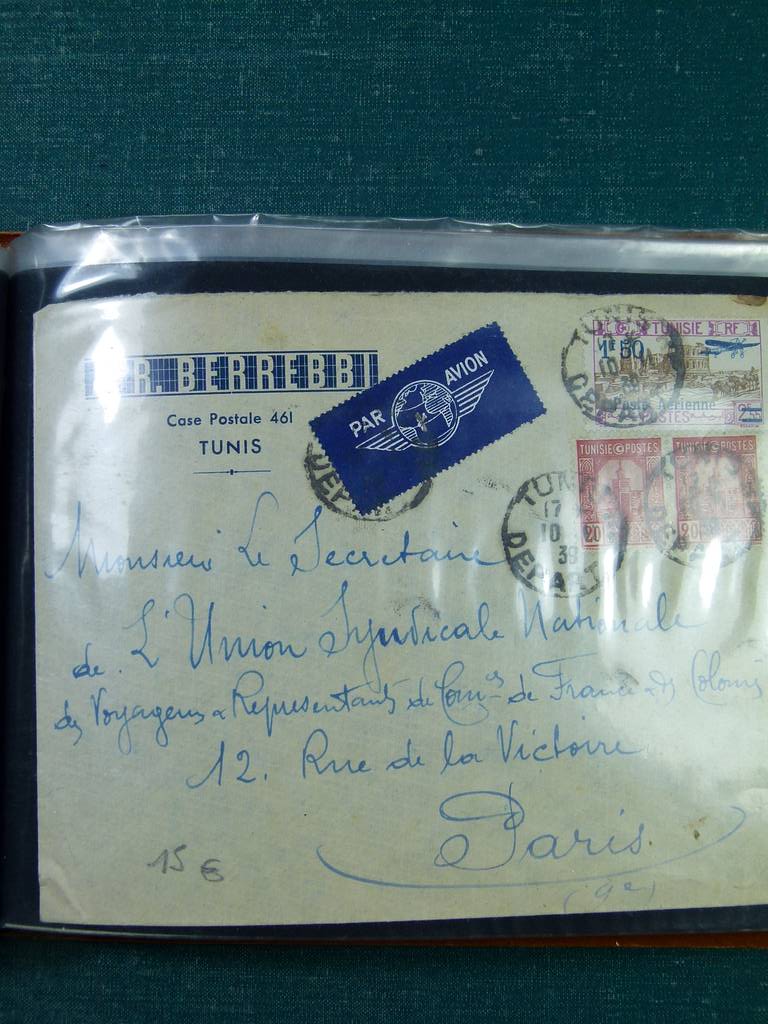 R. BERREBBI
Case Postale 461
TUNIS
PAR AVION
TUNIS
DEPART
TUNISIE RF
1F50
Poste Aérienne
POSTES
TUNISIE POSTES
TUNISIE POSTES
20
20
TUNIS
17
10
39
DEPART
DEPART
Monsieur Le Secretaire
de L'Union Syndicale Nationale
des Voyageurs & Representants de Com^ce de France & des Colonies
12. Rue de la Victoire
Paris.
(9e)
15 €